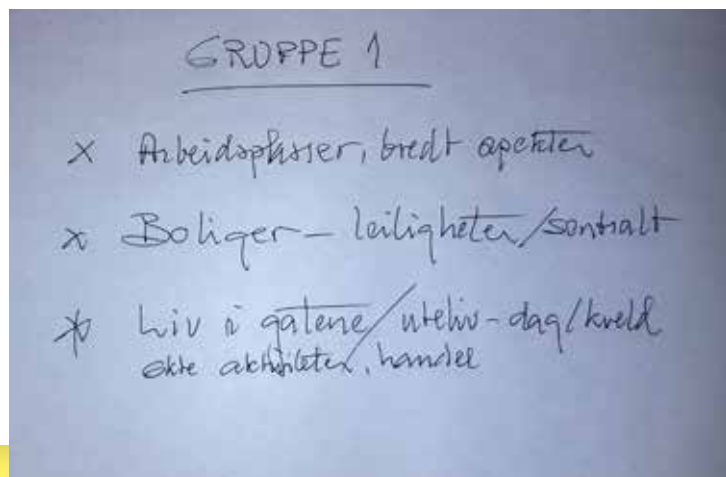 GRUPPE 1
x Arbeidsplasser, bredt spekter
x Boliger - leiligheter/sentralt
x Liv i gatene/uteliv - dag/kveld
økte aktiviteter, handel